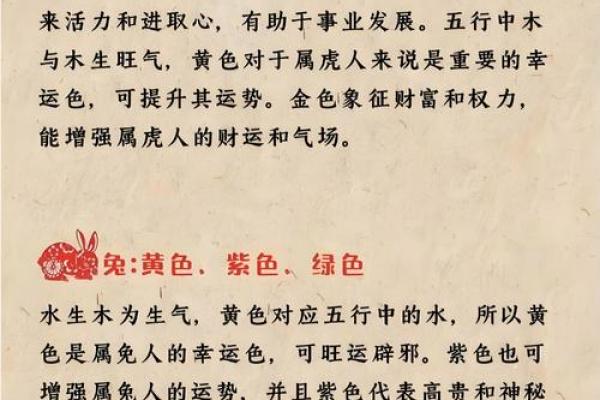 来活力和进取心，有助于事业发展。五行中木
与木生旺气，黄色对于属虎人来说是重要的幸
运色，可提升其运势。金色象征财富和权力，
能增强属虎人的财运和气场。
兔:黄色、紫色、绿色
水生木为生气，黄色对应五行中的水，所以黄
色是属兔人的幸运色，可旺运辟邪。紫色也可
增强属兔人的运势，并且紫色代表高贵和神秘